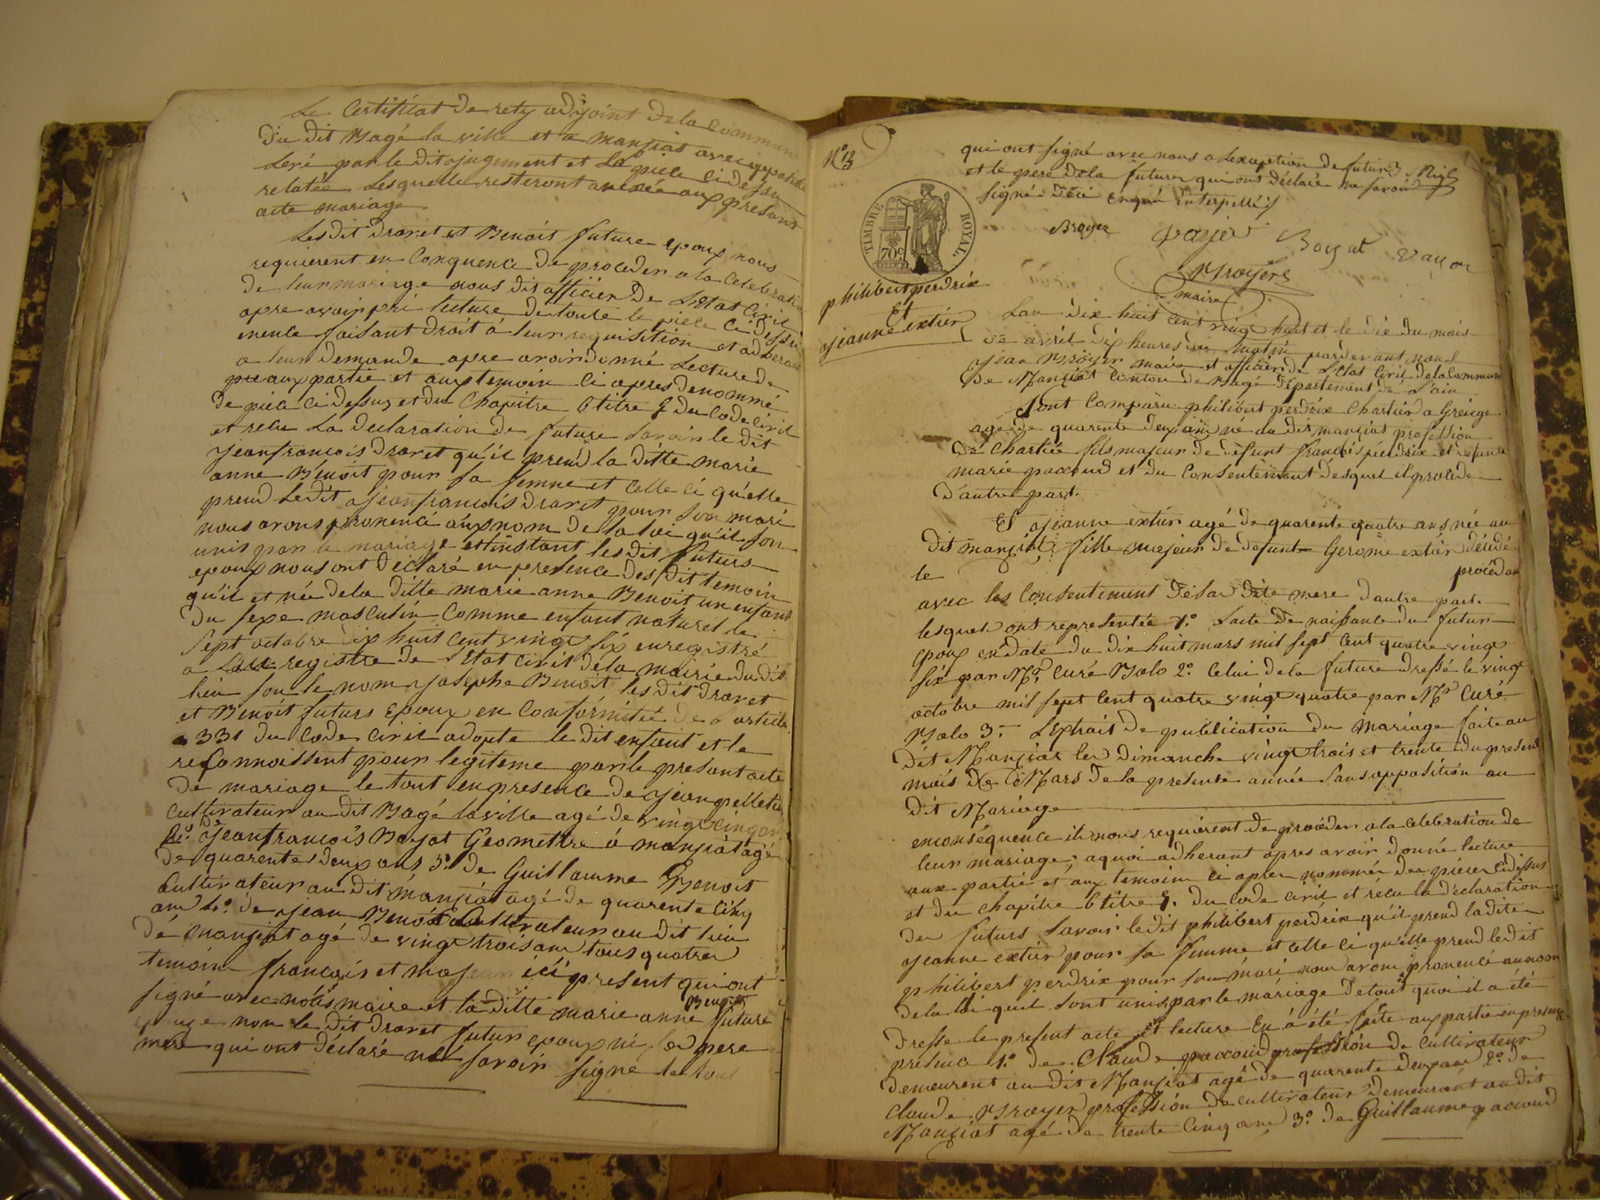 Le Certificat de rety adjoint de la Commune
du dit Bagé la ville et a manziat avec opposition
Levé par le dit ojugement et La piece ci dessus
relatée Lesquelle resteront anexée aux présant
acte mariage
Lesdit Dravet et Benoit future epoux nous
requierent en Conquence de proceder a la Celebration
de leur mariage nous dit officier de L'Etat Civil
apre avoir pri lecture de toute le piece ci dessu
faisant droit á leur requisition et adherant
a leur demande apre avoir donné Lecture de
aux partie et aux temoin ci apres denommé
de piece ci dessus et du Chapitre 6 titre 5 du Code Civil
et recu La declaration de future Savoir le dit
jeanfrancois dravet qu'il prend la ditte marie
anne Benoit pour Sa femme et Celle Ci qu'elle
prend Ledit ojeanfrancois dravet pour Son mari
nous avons prononcé aux nom de la loi qu'il Son
unis par le mariage et l'instant les dit futurs
epoux nous ont déclaré en presence des dit temoin
qu'il et née de la ditte marie anne Benoit un enfant
du Sexe masculin Comme enfant naturel le
Sept octobre dix huit Cent vingt six enregistré
a registre de l'Etat Civil de la mairie du dit
lieu Sou le nom ojosephe Benoit les dit dravet
et Benoit futurs epoux en Conformitée de l'article
331 du Code Civil adopte le dit enfant et le
reconnoissent pour legiteme par le presant acte
de mariage le tout en presence de jean pelletier
Cultivateur au dit Bagé la ville agé de vingt cinq ans
2º. de ojeanfrancois Boyat Géometre á manziat agé
de quarente deux ans 3º. de Guillaume Benoit
Cultivateur au dit manziat agé de quarente Cinq
ans 4º. de jean Benoit Cultivateur au dit lieu
de manziat agé de vingt trois ans tous quatre
temoins francois et majeur ici present qui ont
signé avec nous maire et la ditte marie anne Benoit future
epouze non le dit dravet futur epoux ni Ses pere
mere qui ont déclaré ne Savoir Signé le tout
Nº 13
qui ont Signé avec nous a l'exception de futur
et le pere de la future qui ont déclaré ne Savoir
Signé de ci enqui interpellés
Broyer payer Boyat
Broyer
maire
TIMBRE ROYAL
70c
philibert perdrix
Et
ojeanne extier
L'an dix huit Cent vingt huit et le dix du mois
de avril dix heures du matin pardevant nous
jean Broyer maire et officier de l'Etat Civil de la Commune
de Manziat Canton de Bagé département de l'ain
Sont Comparu philibert perdrix Chartier a Greige
agé de quarente deux ans né au dit manziat profession
de Chartié fils majeur de défunt françois perdrix et defunte
marie pacoud et du Consentement desquel il procede
D'autre part.
Et ojeanne extier agé de quarente quatre ans née au
dit manziat fille majeur de defunt Gerome extier décédé
le procédan
avec les Consentement de Sa dite mere d'autre part.
lesquels ont representée 1º. L'acte de naissance du futur
Epoux en date du dix huit mars mil sept cent quatre vingt
Six par Mr. Curé Balo 2º. Celui de la future dressé le vingt
octobre mil sept Cent quatre vingt quatre par Mr Curé
Balo 3º. L'extrait de publication du Mariage faite au
dit Manziat les Dimanche vingt trois et trente du present
mois de Mars de la presente année Sans opposition au
dit Mariage
en conséquence il nous requierent de proceder a la Celebration de
leur mariage a quoi adherant apres avoir donné lecture
aux partie et aux temoin ci apres nommé des pieces ci dessus
et du Chapitre 6 titre 5. du Code Civil et recu la declaration
des futurs Savoir le dit philibert perdrix qu'il prend la dite
ojeanne extier pour Sa femme et Celle Ci qu'elle prend le dit
philibert perdrix pour Son mari nous avons prononcé au nom
de la loi quil Sont unis par le mariage De tout quoi il a été
dressé le present acte Et lecture En á été faite aux partie en presence
presence 1º. de Claude pacoud profession de Cultivateur
demeurent au dit Manziat agé de quarente deux ans 2º. de
Claude Broyer profession de Cultivateur demeurant au dit
Manziat agé de trente Cinq ans 3º. de Guillaume pacoud